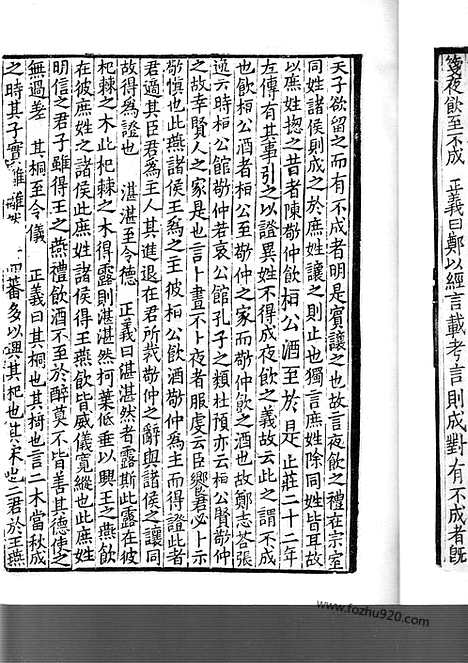 夜飲至不成　正義曰鄭以經言載考言則成對有不成者旣
天子欲留之而有不成者明是賓讓之也故言夜飲之禮在宗室
同姓諸侯則成之於庶姓讓之則止也獨言庶姓除同姓皆耳故
以庶姓揔之昔者陳敬仲飲桓公酒至於是止莊二十二年
左傳有其事引之以證異姓不得成夜飲之義故云此之謂不成
也飲桓公酒者桓公至敬仲之家而敬仲飲之酒也故鄭志荅張
逸六時桓公館敬仲若哀公館孔子之類杜預亦云桓公賢敬仲
之故幸賢人之家是也言卜晝不卜夜者服虔云臣饗君必卜示
敬愼也此庶姓諸侯王爲之主彼桓公飲酒敬仲爲主而得證此者
君適其臣君爲主人其進退在君所裁敬仲之辭與諸侯之讓同
故得爲證也　湛湛至令德　正義曰湛湛然者露斯此露在彼
杞棘之木此杞棘之木得露則湛湛然柯葉低垂以興王之燕飲
在彼庶姓之諸侯此庶姓諸侯得王燕飲皆威儀寬縱也此庶姓
明信之君子雖得王之燕禮飲酒不至於醉莫不皆善其德使之
無過差　其桐至令儀　正義曰其桐也其椅也言二木當秋成
之時其子實離離　蕃多以興其杞也其宋也二君於王燕
www.fozhu920.com